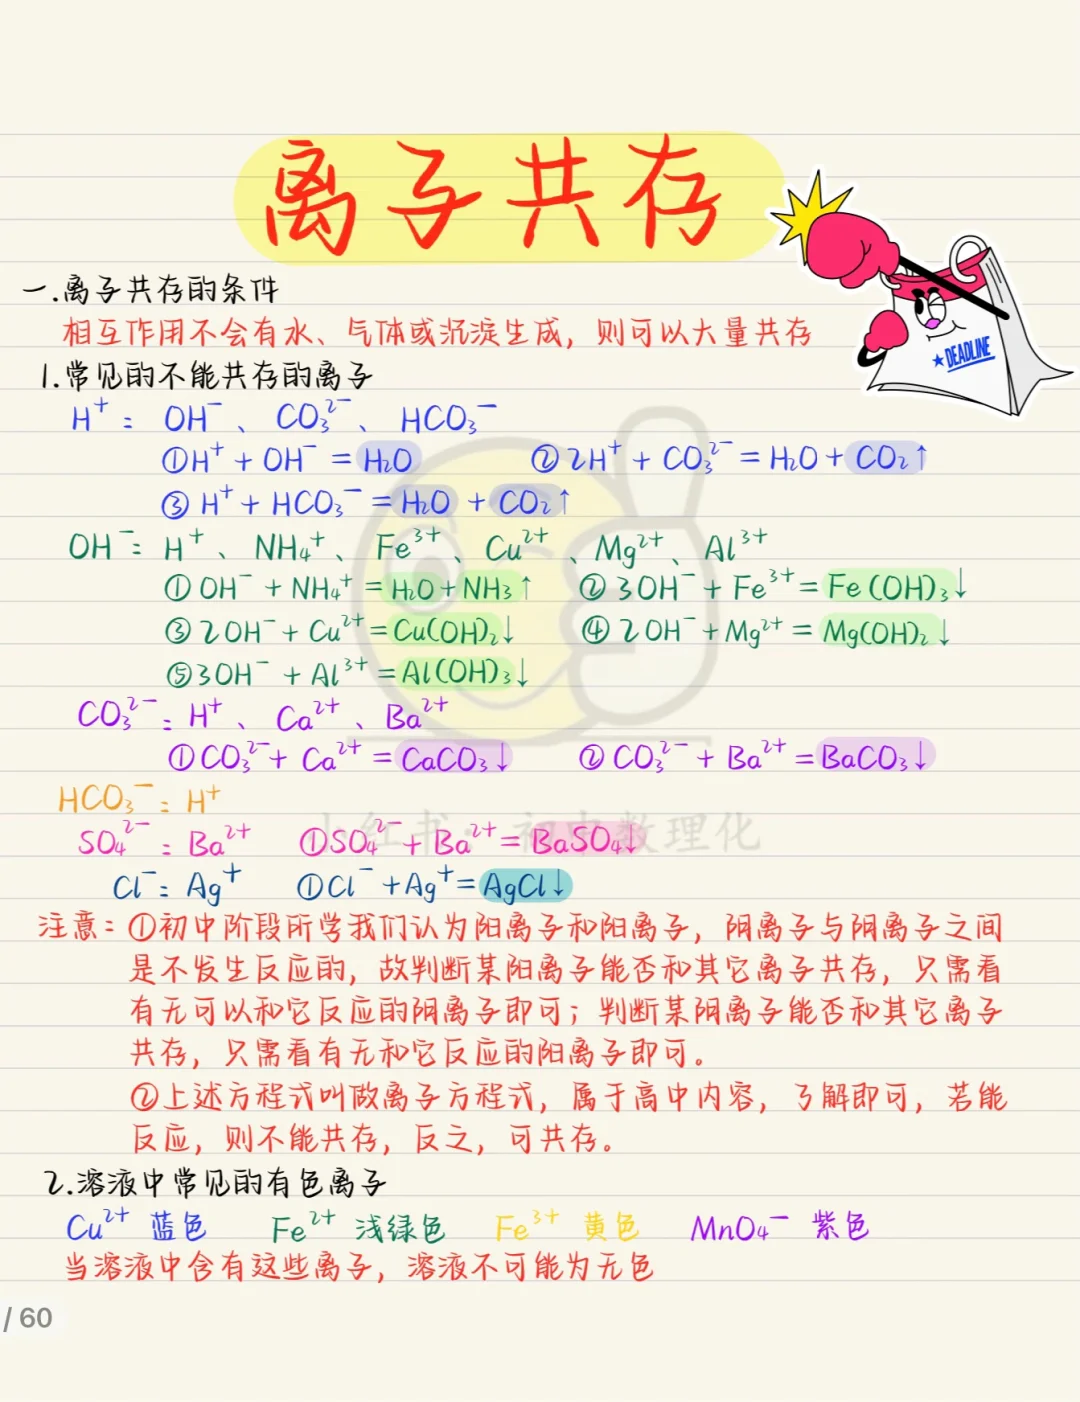 离子共存
DEADLINE
一.离子共存的条件
相互作用不会有水、气体或沉淀生成，则可以大量共存
1.常见的不能共存的离子
H⁺: OH⁻、CO₃²⁻、HCO₃⁻
①H⁺+OH⁻=H₂O ②2H⁺+CO₃²⁻=H₂O+CO₂↑
③H⁺+HCO₃⁻=H₂O+CO₂↑
OH⁻: H⁺、NH₄⁺、Fe³⁺、Cu²⁺、Mg²⁺、Al³⁺
①OH⁻+NH₄⁺=H₂O+NH₃↑ ②3OH⁻+Fe³⁺=Fe(OH)₃↓
③2OH⁻+Cu²⁺=Cu(OH)₂↓ ④2OH⁻+Mg²⁺=Mg(OH)₂↓
⑤3OH⁻+Al³⁺=Al(OH)₃↓
CO₃²⁻: H⁺、Ca²⁺、Ba²⁺
①CO₃²⁻+Ca²⁺=CaCO₃↓ ②CO₃²⁻+Ba²⁺=BaCO₃↓
HCO₃⁻: H⁺
小红书：初中数理化
SO₄²⁻: Ba²⁺ ①SO₄²⁻+Ba²⁺=BaSO₄↓
Cl⁻: Ag⁺ ①Cl⁻+Ag⁺=AgCl↓
注意：①初中阶段所学我们认为阳离子和阳离子，阴离子与阴离子之间
是不发生反应的，故判断某阳离子能否和其它离子共存，只需看
有无可以和它反应的阴离子即可；判断某阴离子能否和其它离子
共存，只需看有无和它反应的阳离子即可。
②上述方程式叫做离子方程式，属于高中内容，了解即可，若能
反应，则不能共存，反之，可共存。
2.溶液中常见的有色离子
Cu²⁺ 蓝色 Fe²⁺ 浅绿色 Fe³⁺ 黄色 MnO₄⁻ 紫色
当溶液中含有这些离子，溶液不可能为无色
/ 60